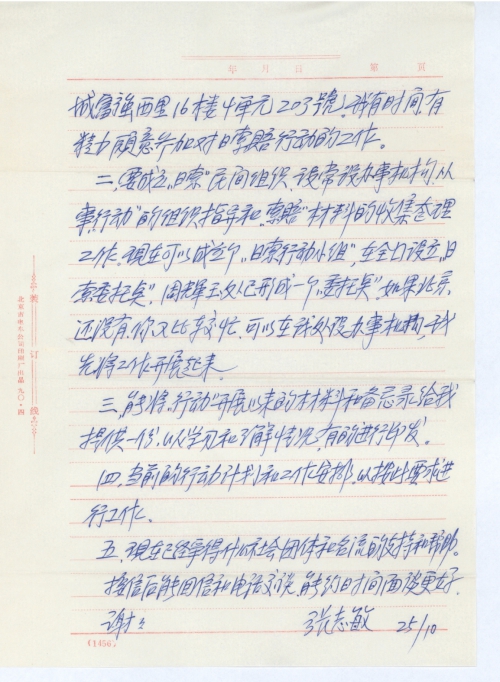 年 月 日 第 页
城富强西里16楼4单元203號。我有时间、有
精力愿意参加对日索賠行动的工作。
二、要成立"日索"民间组织、设常设办事机构,从
事"行动"的组织指导和"索賠"材料的收集整理
工作。现在可以成立个"日索行动小组",在全口设立"日
索委托点",周輝 处已形成一个"委托点",如果北京
还没有,你又比较忙,可以在我处设办事机构,我
先将工作开展起来。
三、能将"行动"开展以来的材料和备忘录给我
提供一份,以学习和了解情况,有的进行印发。
四、当前的行动计划和工作安排,以按此要求进
行工作。
五、现在已经争得什么社会团体和名流的支持和帮助。
接信后能回信和电话交谈,能约时间面谈更好。
谢谢 张志敏 25/10
装订线
北京市电车公司印刷厂出品 九〇·四
(1456)